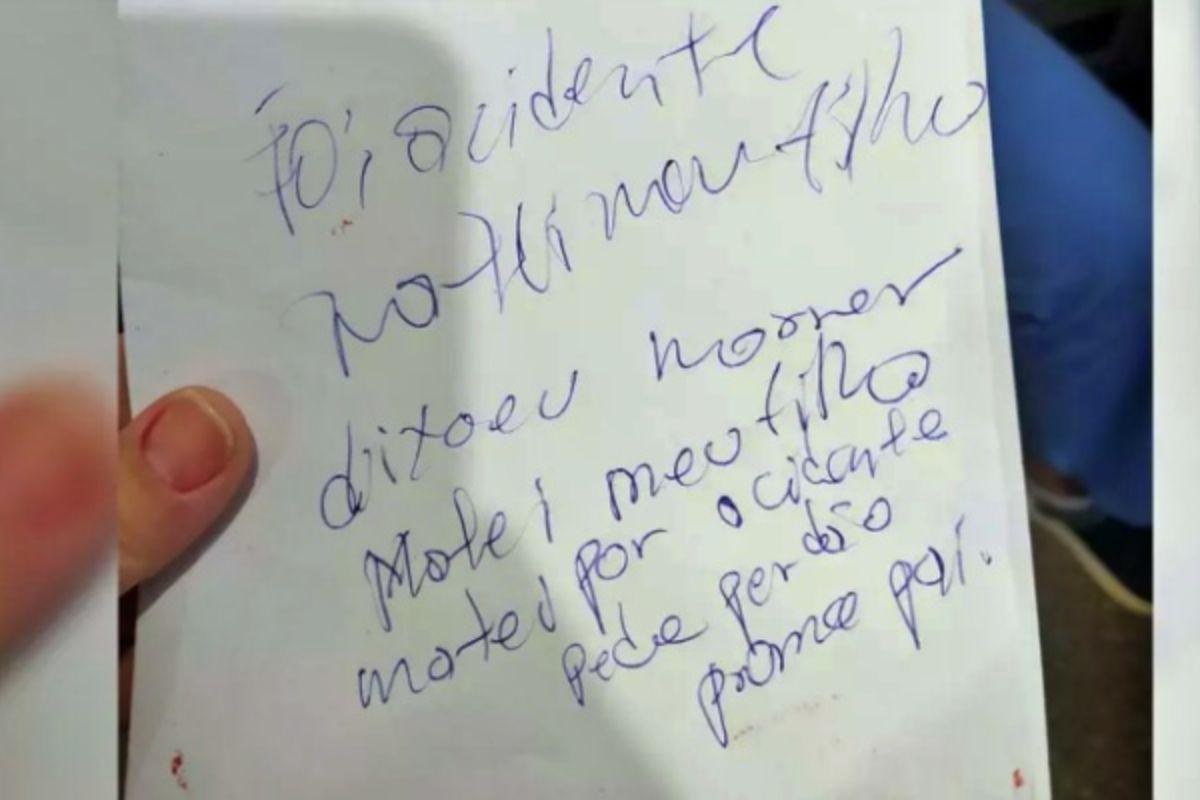 foi acidente
Matei meu filho
dixaeu morrer
Matei meu filho
matei por acidante
pede perdão
prome pai.